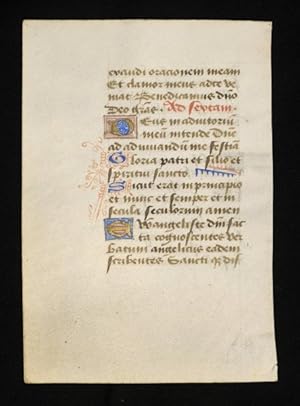 exaudi oracionem meam
Et clamor meus ad te ve
niat Benedicamus dn̄o
Deo grās. Ad sextam.
Deus in adiutoriū
meū intende Dn̄e
ad adiuvandū me festīa
Gloria patri et filio et
spiritui sancto
Sicut erat in principio
et nunc et semper et in
secula seculorum amen
Ewangeliste dn̄i
ta cognoscentes ver
batum angelicus eadem
scribentes Sancti